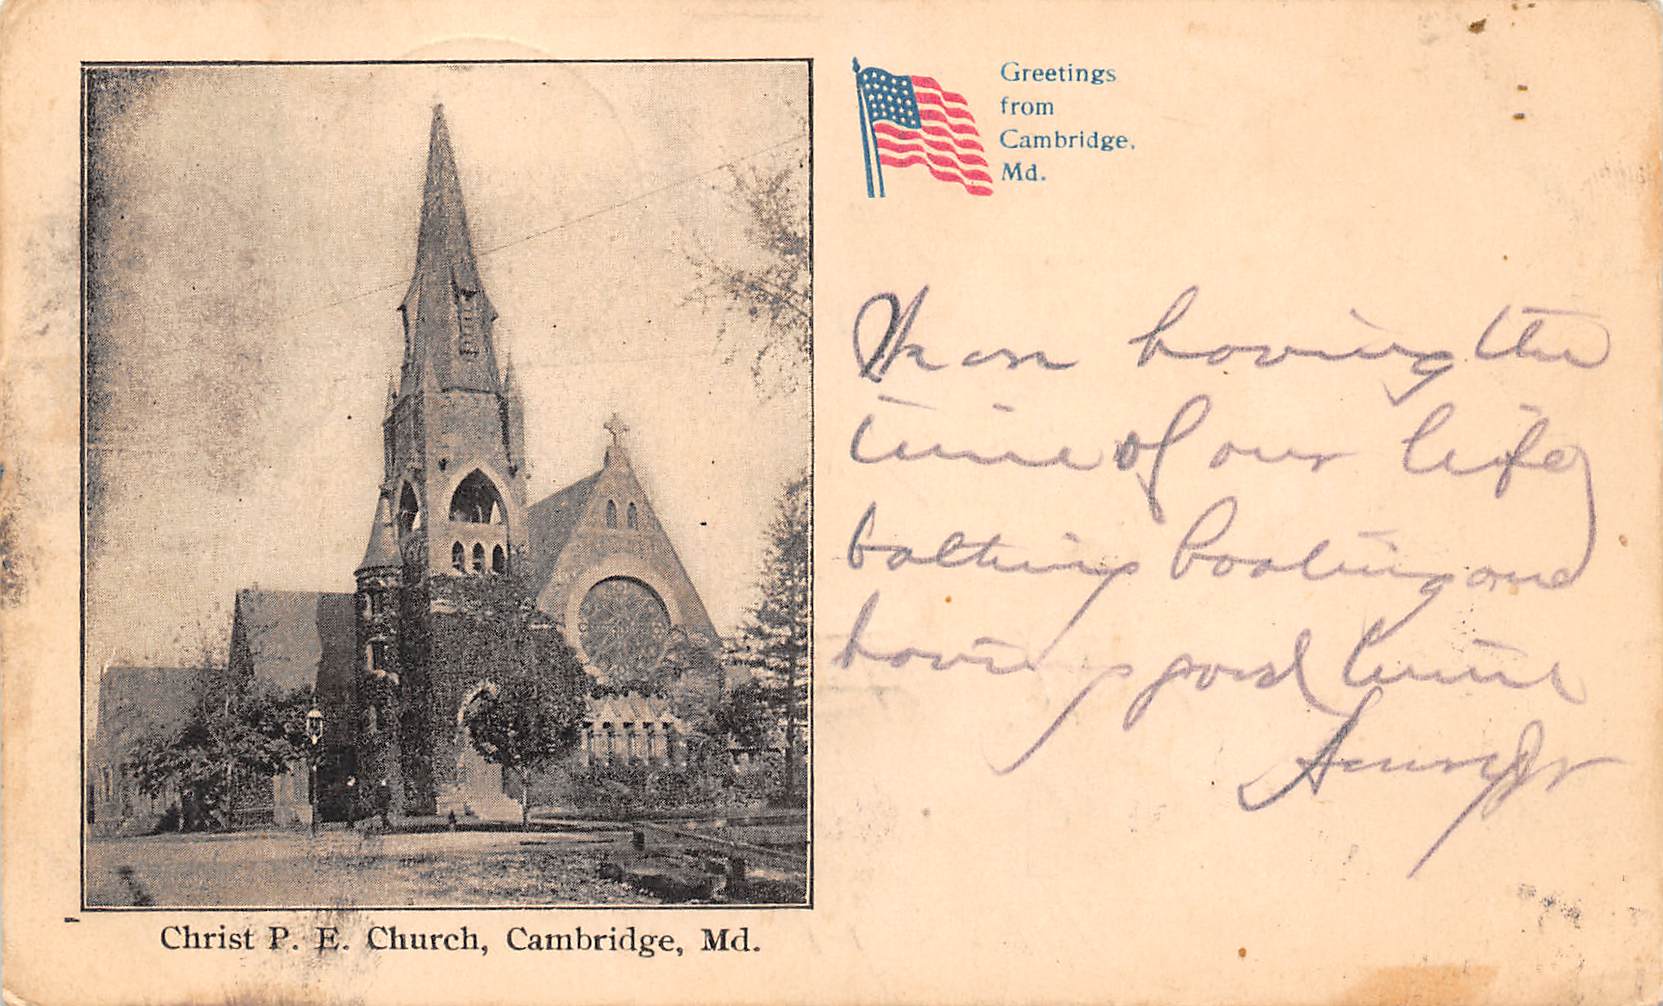 Greetings
from
Cambridge,
Md.
having the
time of our life
bathing boating and
having good time
Christ P. E. Church, Cambridge, Md.